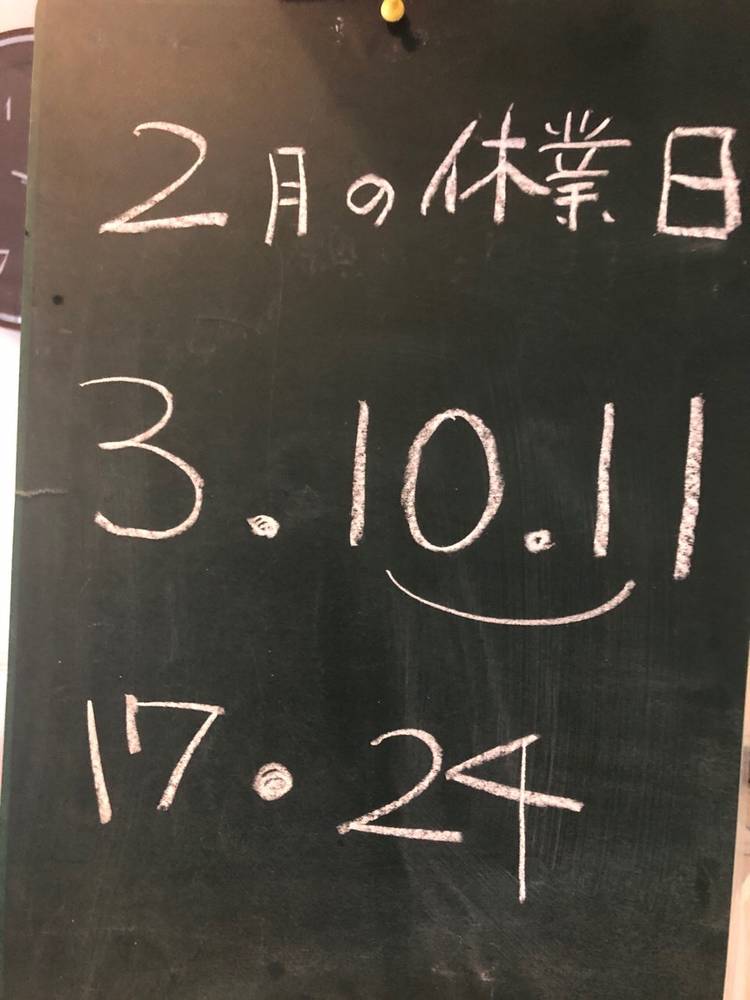 2月の休業日
3.10.11
17・24